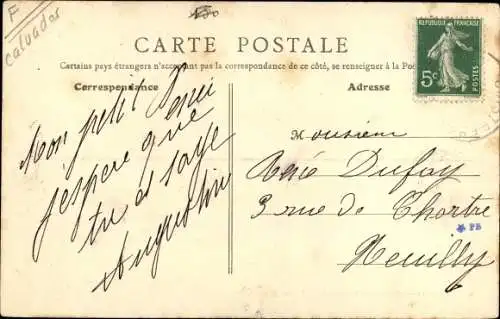 F
calvados
CARTE POSTALE
Certains pays étrangers n'acceptant pas la correspondance de ce côté, se renseigner à la Pos
Correspondance
Adresse
REPUBLIQUE FRANÇAISE
5c
POSTES
Mon petit René
j'espère que
tu es sage
Augustine
Monsieur
René Dufay
3 rue de Chartre
Neuilly
PB